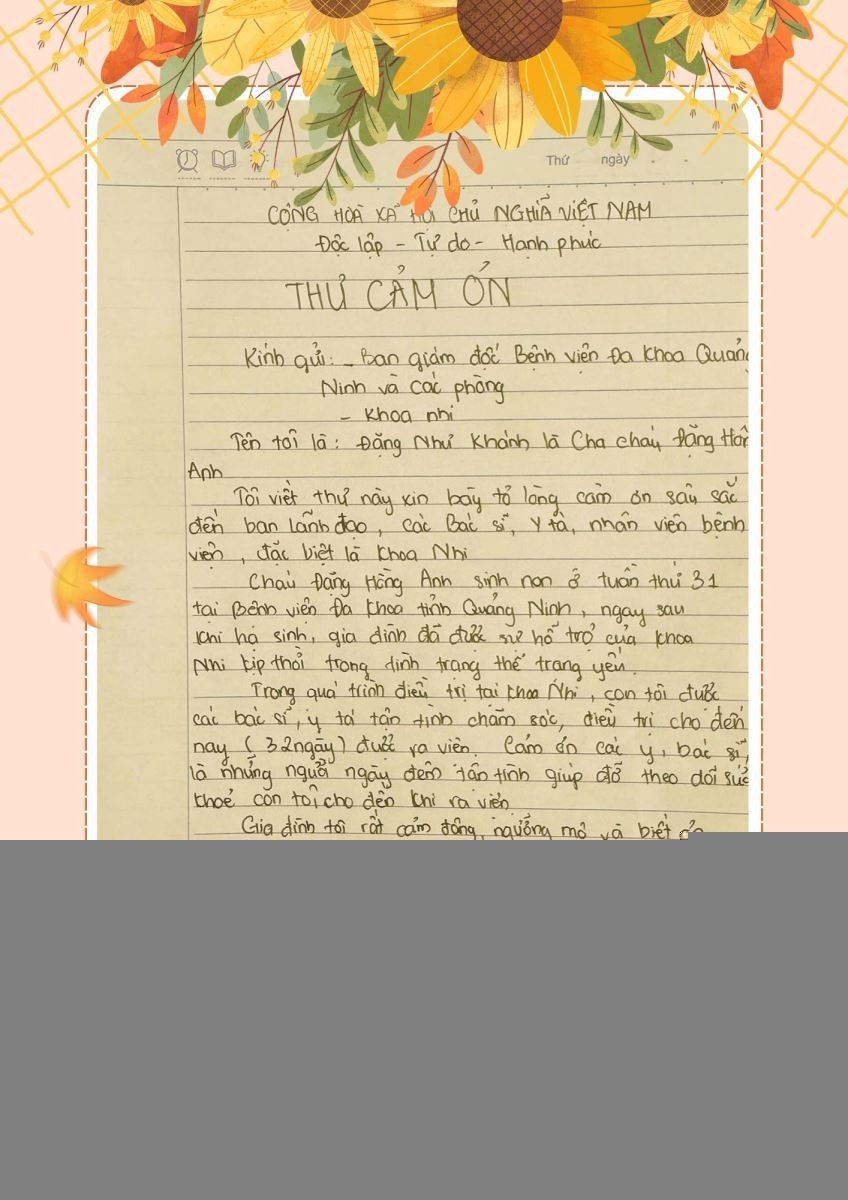 Thứ ngày - -
CỘNG HOÀ XÃ HỘI CHỦ NGHĨA VIỆT NAM
Độc lập - Tự do - Hạnh phúc
THƯ CẢM ƠN
Kính gửi: - Ban giám đốc Bệnh viện Đa khoa Quảng
Ninh và các phòng
- Khoa nhi
Tên tôi là: Đặng Như Khánh là Cha cháu Đặng
Anh
Tôi viết thư này xin bày tỏ lòng cảm ơn sâu sắc
đến ban lãnh đạo, các Bác sĩ, Y tá, nhân viên bệnh
viện, đặc biệt là Khoa Nhi
Cháu Đặng Hồng Anh sinh non ở tuần thứ 31
tại Bệnh viện Đa khoa tỉnh Quảng Ninh, ngay sau
khi hạ sinh, gia đình đã được sự hỗ trợ của khoa
Nhi kịp thời trong tình trạng thể trạng yếu.
Trong quá trình điều trị tại khoa Nhi, con tôi được
các bác sĩ, y tá tận tình chăm sóc, điều trị cho đến
nay (32 ngày) được ra viện. Cảm ơn các y, bác sĩ,
là những người ngày đêm tận tình giúp đỡ theo dõi sức
khoẻ con tôi cho đến khi ra viện
Gia đình tôi rất cảm động, ngưỡng mộ và biết